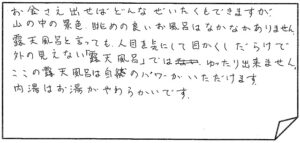 お金さえ出せばどんなぜいたくもできますが、
山の中の景色、眺めの良いお風呂はなかなかありません。
露天風呂と言っても、人目を気にして目かくしだらけで
外の見えない「露天風呂」では ゆったり出来ません。
ここの露天風呂は自然のパワーがいただけます。
内湯はお湯がやわらかいです。